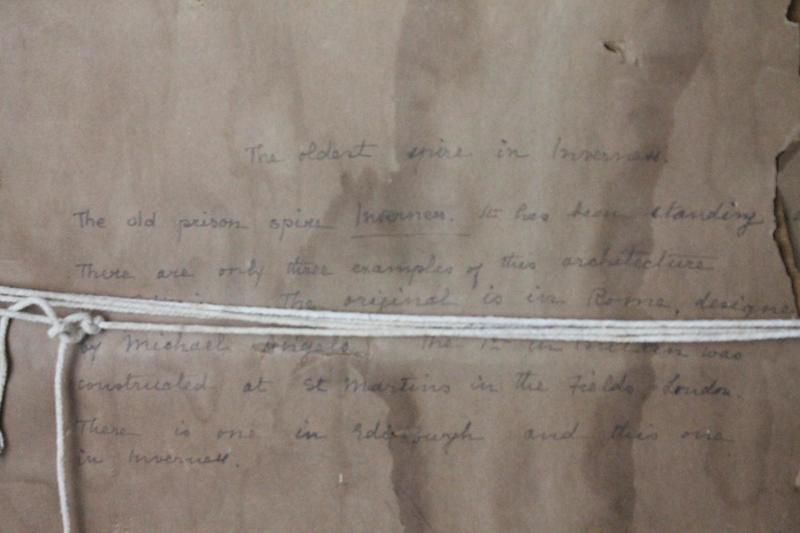 The oldest spire in Inverness.
The old prison spire Inverness. It has been standing
There are only three examples of this architecture
The original is in Rome, designe
by Michael Angelo. The 1st in Britain was
constructed at St Martins in the Fields London.
There is one in Edinburgh and this one
in Inverness.